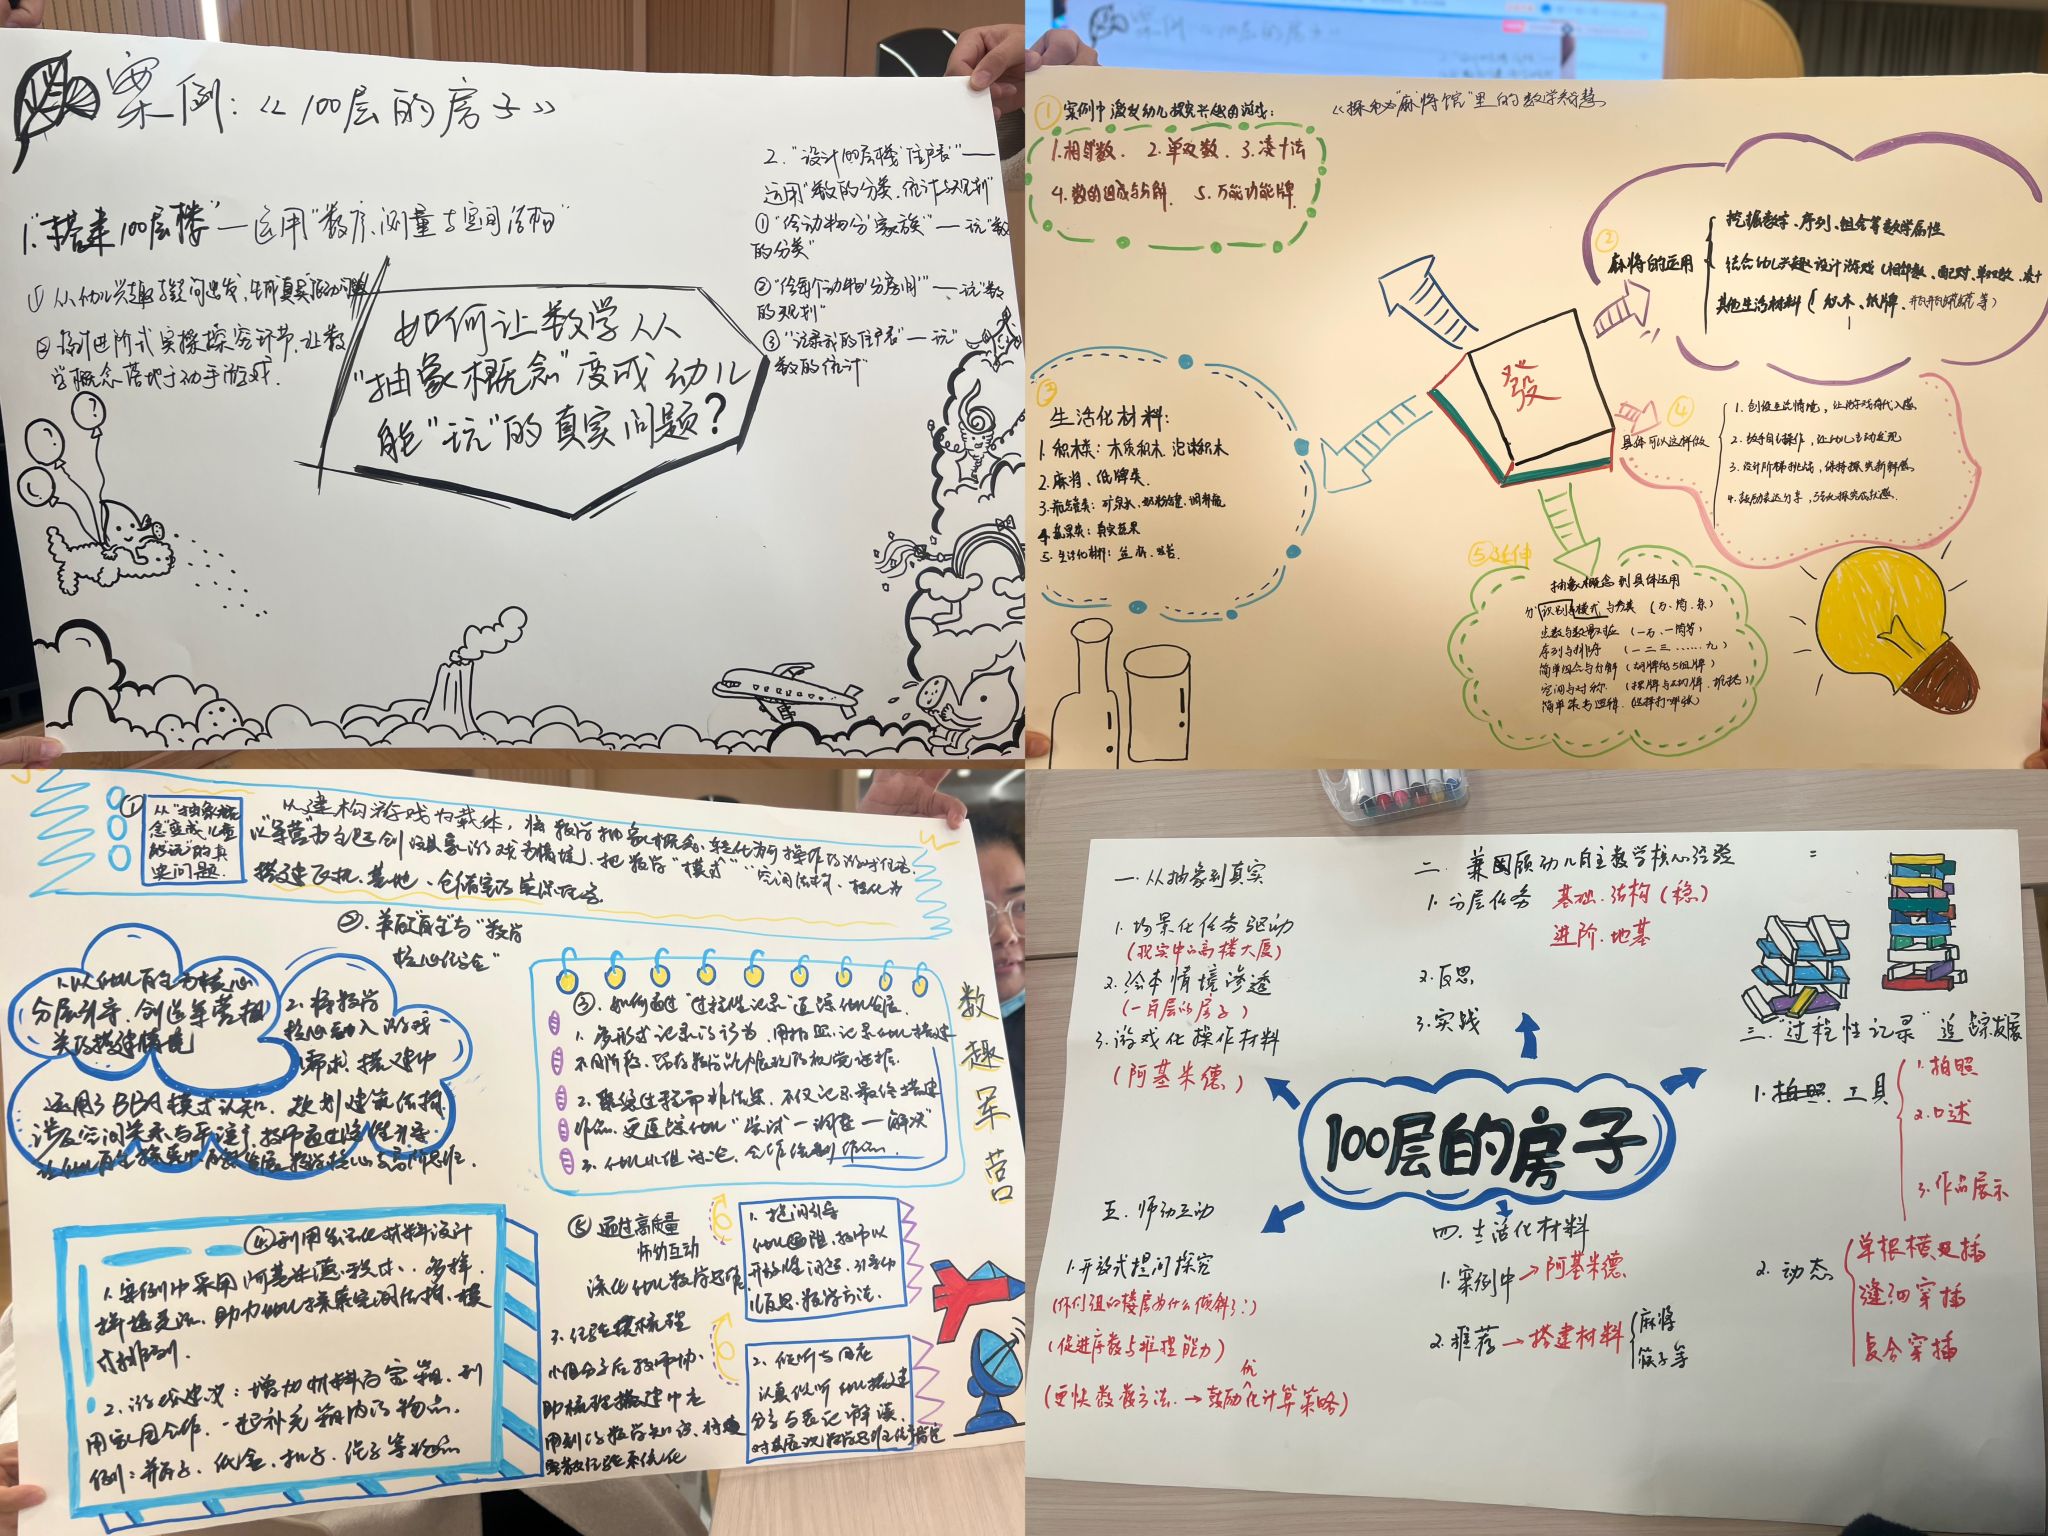 案例:《100层的房子》
1."搭建100层楼"—运用"数序、测量与空间结构"
① 从幼儿兴趣与疑问出发,生成真实驱动问题
② 设计进阶式实操探究环节,让数
学概念落地于动手游戏.
如何让数学从
"抽象概念"变成幼儿
能"玩"的真实问题?
2."设计100层楼'住户表'"——
运用"数的分类、统计与规划"
①"给动物分'家族'"—玩"数
的分类"
②"给每个动物'分房间'"—玩"数
的规划"
③"记录我的住户表"—玩"
数的统计"
案例:《100层的房子》
《探秘"麻将馆"里的数学智慧》
① 案例中激发幼儿探究兴趣的游戏:
1.相邻数. 2.单双数. 3.凑十法
4.数的组成与分解. 5.万能功能牌.
② 麻将的运用
挖掘数字、序列、组合等数学属性
结合幼儿兴趣设计游戏(相邻数、配对、单双数、凑十
其他生活材料(积木、纸牌、瓶瓶罐罐等)
③
生活化材料:
1.积木类:木质积木、泡沫积木
2.麻将、纸牌类.
3.瓶罐类:矿泉水、奶粉罐、调料瓶
4.蔬果类:真实蔬果
5.生活化材料:
發
④
具体可以这样做
1.创设生活情境,让游戏有代入感
2.放手自主操作,让幼儿主动发现
3.设计阶梯挑战,保持探究新鲜感
4.鼓励表达分享,强化探究成就感.
⑤延伸
抽象概念到具体运用
识别模式与分类(万、筒、条)
点数与数量对应(一万、一筒等)
序列与排序(一二三……九)
简单组合与分解(胡牌的与组牌)
空间与对称(摆牌与砌牌、
简单策略与逻辑(选择打哪张)
①
从"抽象概
念"变成儿童
能"玩"的真
实问题.
以建构游戏为载体,将数学抽象概念,转化为可操作的游戏任务.
以"军营"为主题创设具象游戏情境,把数学"模式""空间结构"转化为
搭建飞机、基地、仓储室的具体任务.
②.兼顾"自主"与"数学
核心经验"
1.以幼儿自主为核心
分层引导,创造军营相
关的搭建情境
2.将数学
核心融入游戏
需求,搭建中
运用了BBA模式认知、规划建筑结构
涉及空间关系与平衡,教师通过隐性引导
让幼儿自主探究中自然发展数学核心与高阶思维.
③.如何通过"过程性记录"追踪幼儿发展.
1.多形式记录的行为,用拍照、记录幼儿搭建
不同阶段,留存数学认知展现的视觉证据.
2.聚焦过程而非结果,不仅记录最终搭建
作品,更追踪幼儿"尝试—调整—解决"
3.幼儿小组讨论,合作绘制作品.
数
趣
军
营
④利用生活化材料设计
1.案例中采用阿基米德积木,多样
拼接灵活,助力幼儿探索空间结构、模
式排列.
2.游戏建议:增加材料百宝箱,利
用家园合作,一起补充箱内的物品.
例:瓶子、纸盒、扣子、 等物品
⑤通过高质量
师幼互动
深化幼儿数学思维
1.提问引导
幼儿遇阻,教师以
开放性问题,引导幼
儿反思数学方法.
2.倾听与回应
认真倾听幼儿搭建
分享与表记解读,
3.经验梳理
小组分享后教师协
助梳理搭建中运
用到的数学知识,将
零散经验系统化
一.从抽象到真实
1.场景化任务驱动
(现实中的高楼大厦)
2.绘本情境渗透
(一百层的房子)
3.游戏化操作材料
(阿基米德)
二.兼顾幼儿自主数学核心经验
1.分层任务 基础.结构(稳)
进阶.地基
2.反思
3.实践
三."过程性记录"追踪发展
1.拍照.工具
1.拍照
2.口述
3.作品展示
2.动态
单根横竖插
缝细穿插
复合穿插
100层的房子
四.生活化材料
1.案例中→阿基米德
2.推荐→搭建材料
麻将
筷子等
五.师幼互动
1.开放式提问探究
(你们组的楼房为什么倾斜了?)
(促进序数与推理能力)
(更快数数方法.→鼓励优化计算策略)